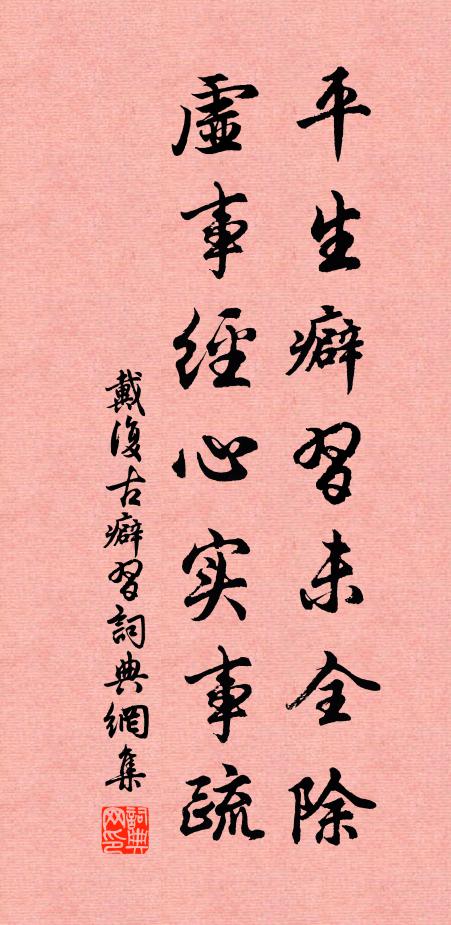 平生癖習未全除
虛事經心实事疏
戴復古癖習詞典網集
詞典网印